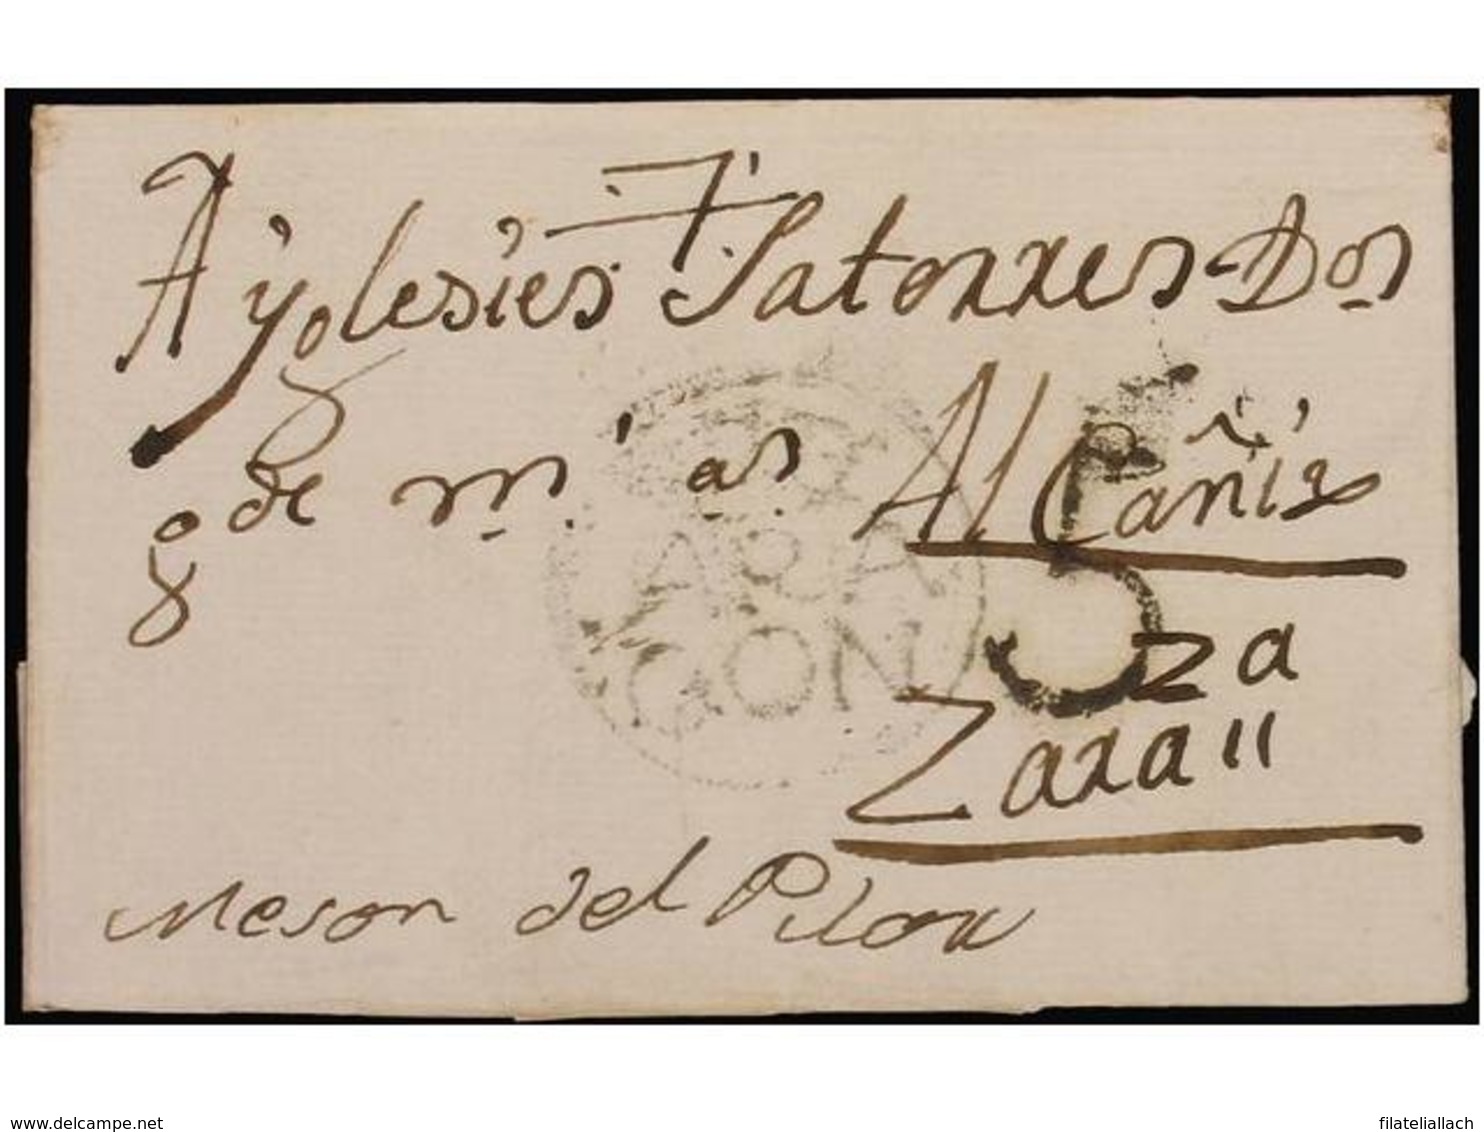 A Yglesies Satorres Dos
gde ms as Alcañiz
za
Zaraa
Meson del Pilon
ARA
GON
5
www.delcampe.net
filateliallach